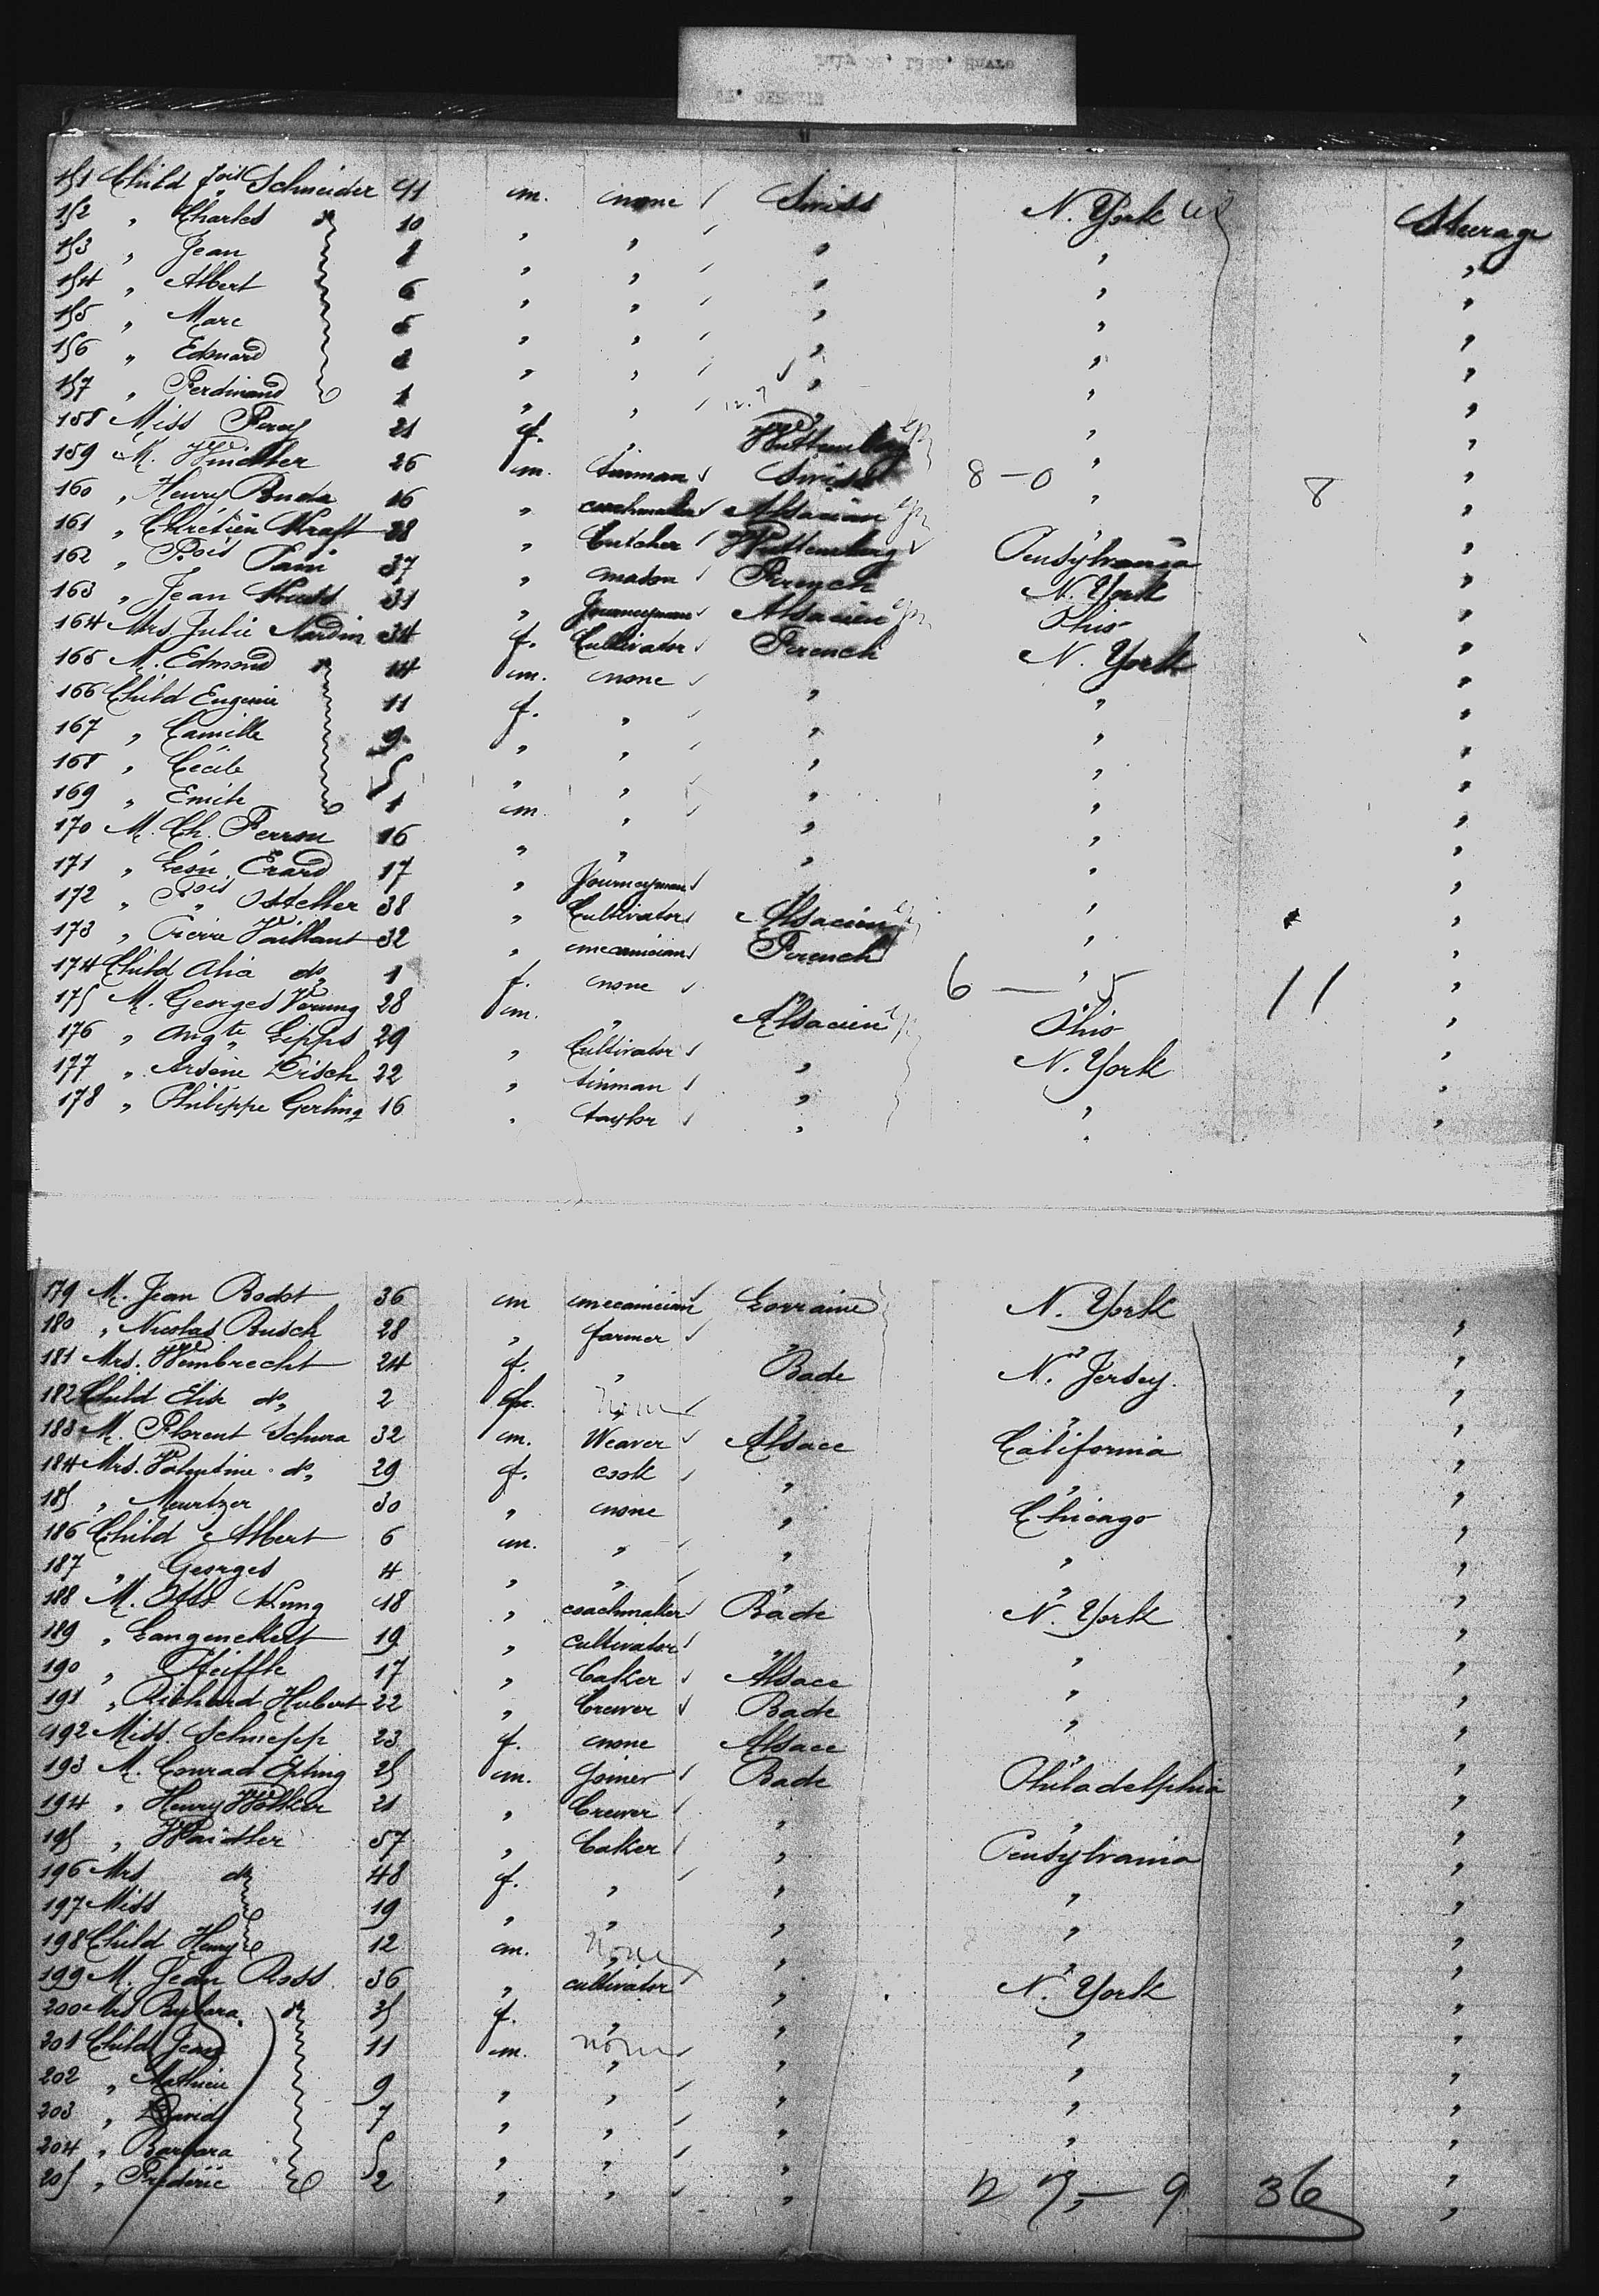 151 Child fois Schneider 11 m. none Swiss N. York US Steerage
152 " Charles do 10 " " " " "
153 " Jean " " " " "
154 " Albert 6 " " " " "
155 " Marc 5 " " " " "
156 " Edouard " " " " "
157 " Ferdinand 1 " " " " "
158 Miss 21 f. " Wuttemberg " "
159 M. Windler 26 m. tinman Swiss 8-0 " 8 "
160 " Henry Buda 16 " coachmaker Alsacian " "
161 " Chrétien Kraft 28 " butcher Wuttemberg Pensylvania "
162 " Fois Pami 37 " mason French N. York "
163 " Jean Kuss 31 " Journeyman Alsacien Ohio "
164 Mrs. Julie Nardin 34 f. Cultivator French N. York "
165 M. Edmond do 14 m. none " " "
166 Child Eugenie 11 f. " " " "
167 " Camille 9 " " " " "
168 " Cécile 5 " " " " "
169 " Emile 1 m " " " "
170 M. Ch. Perron 16 " " " " "
171 " Léon Erard 17 " Journeyman " " "
172 " Fois Osteller 38 " Cultivator Alsacien " "
173 " Pierre Vaillant 32 " mecanician French " "
174 Child Alia do 1 f. none " 6 - 5 11 "
175 M. Georges 28 m. " Alsacien Ohio "
176 " Augte Lipps 29 " Cultivator " N. York "
177 " Arsène Disch 22 " tinman " " "
178 " Philippe Gerling 16 " taylor " " "
179 M. Jean Bodot 36 m mecanician Lorraine N. York "
180 " Nicolas Busch 28 " farmer " " "
181 Mrs. Wembrecht 24 f. " Bade N. Jersey "
182 Child Elise do 2 none " " "
183 M. Florent Schura 32 m. Weaver Alsace California "
184 Mrs. Valentine do 29 f. cook " " "
185 " Meurtzer 30 " none " Chicago "
186 Child Albert 6 m. " " " "
187 " Georges 4 " " " " "
188 M. Otto Kung 18 " coachmaker Bade N. York "
189 " Langeneckert 19 " cultivator " " "
190 " Steiffle 17 " baker Alsace " "
191 " Richard Hubert 22 " brewer Bade " "
192 Miss. Schnepp 23 f. none Alsace " "
193 M. Conrad Epting 25 m. joiner Bade Philadelphia "
194 " Henry Wölker 21 " brewer " " "
195 " Waidler 57 " baker " Pensylvania "
196 Mrs do 48 f. " " " "
197 Miss 19 " " " " "
198 Child Henry 12 m. none " " "
199 M. Jean Ross 36 " cultivator " N. York "
200 Mrs Barbara do 35 f. " " " "
201 Child Jean 11 m. none " " "
202 " Mathieu 9 " " " " "
203 " David 7 " " " " "
204 " Barbara 5 " " " " "
205 " Frédéric 2 " " " 27-9 36 "